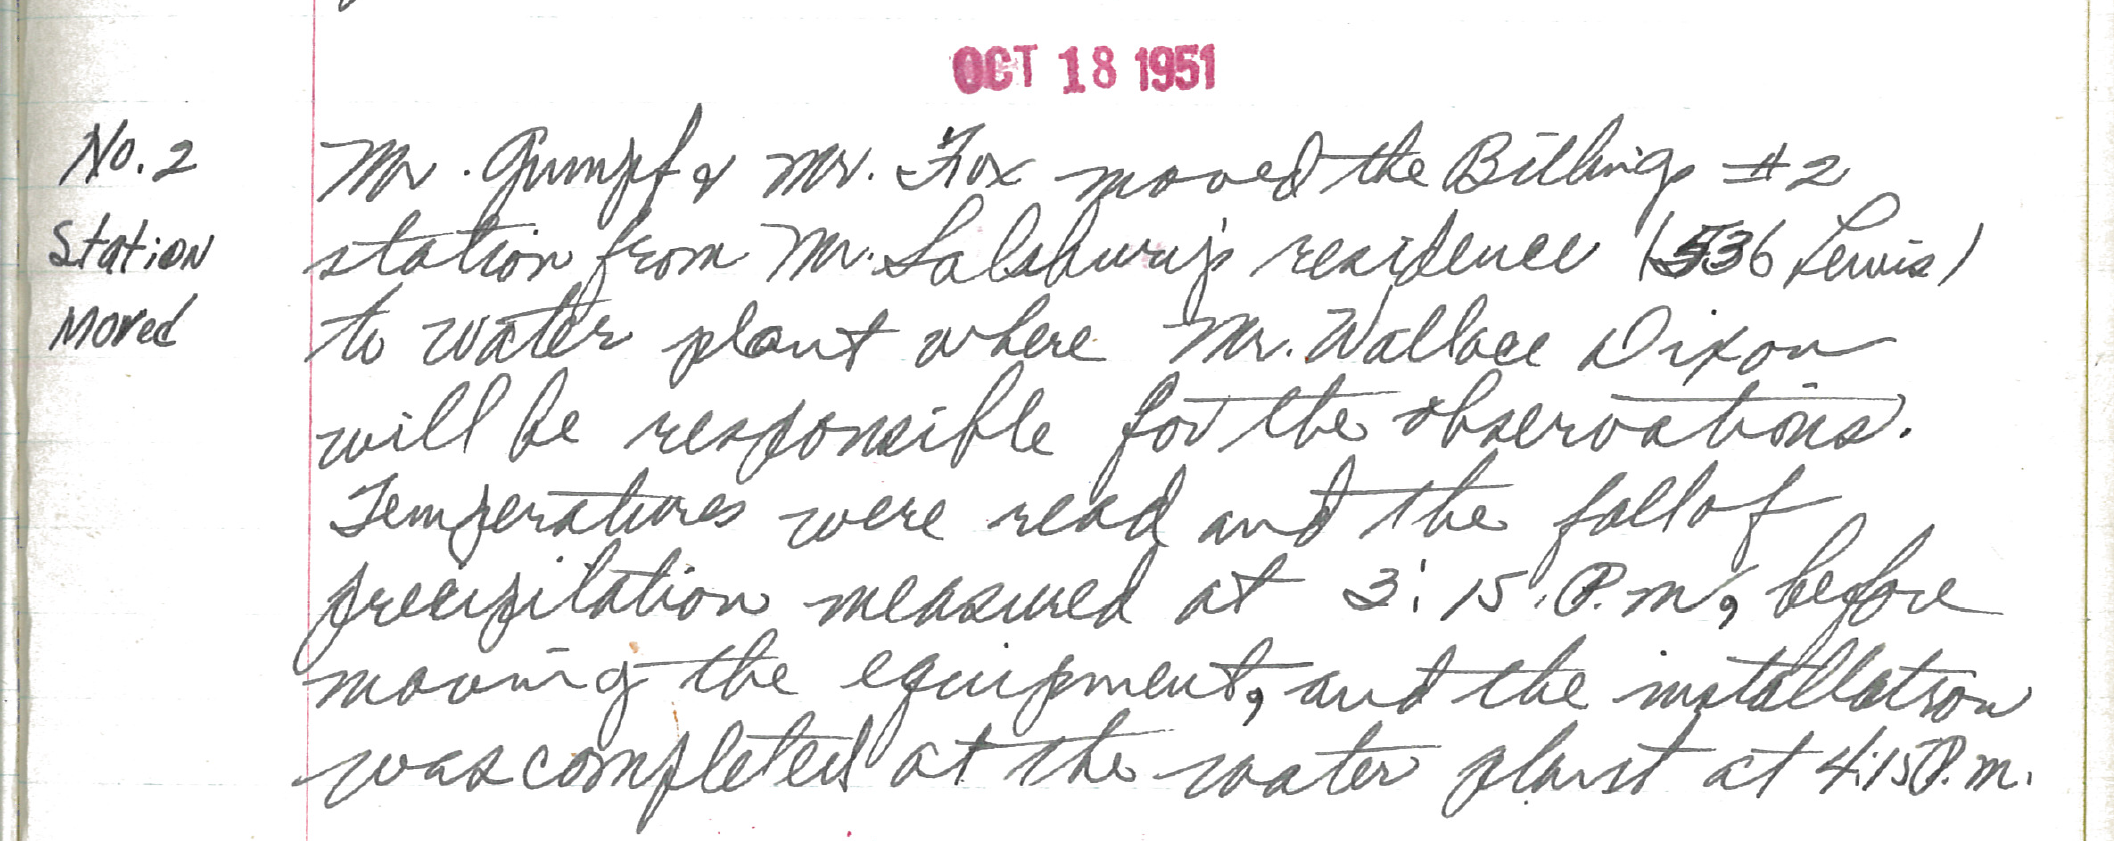 OCT 18 1951
No. 2 Mr. Gumpf & Mr. Fox moved the Billings #2
Station station from Mr. Salsbury's residence (536 Lewis)
Moved to water plant where Mr. Wallace Dixon
will be responsible for the observations.
Temperatures were read and the fall of
precipitation measured at 3:15 P.m, before
moving the equipment, and the installation
was completed at the water plant at 4:15 P.m.